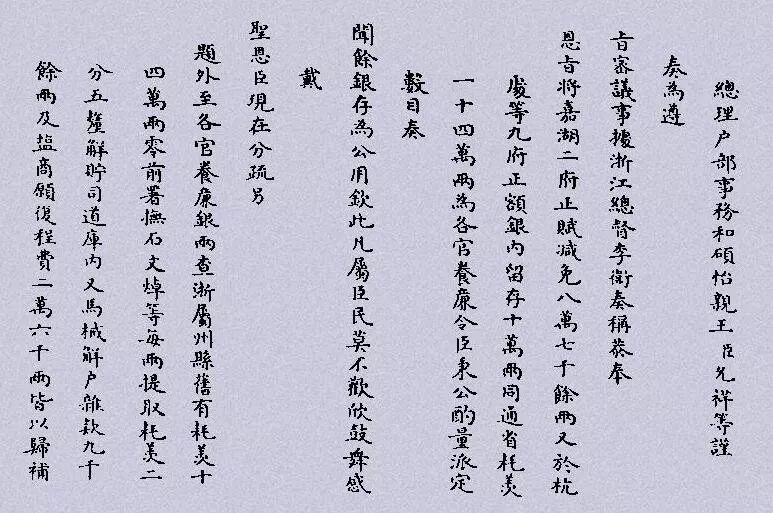 總理户部事務和碩怡親王臣允祥等謹
奏為遵
旨審議事據浙江總督李衛奏稱恭奉
恩旨將嘉湖二府正賦減免八萬七千餘兩又於杭
處等九府正額銀內留存十萬兩同通省耗羨
一十四萬兩為各官養廉令臣秉公酌量派定
數目奏
聞餘銀存為公用欽此凡屬臣民莫不歡欣鼓舞感
戴
聖恩臣現在分疏另
題外至各官養廉銀兩查浙屬州縣舊有耗羨十
四萬兩零前署撫石文焯等每兩提取耗羨二
分五釐解貯司道庫內又馬械解户雜款九千
餘兩及塩商願復程費二萬六千兩皆以歸補